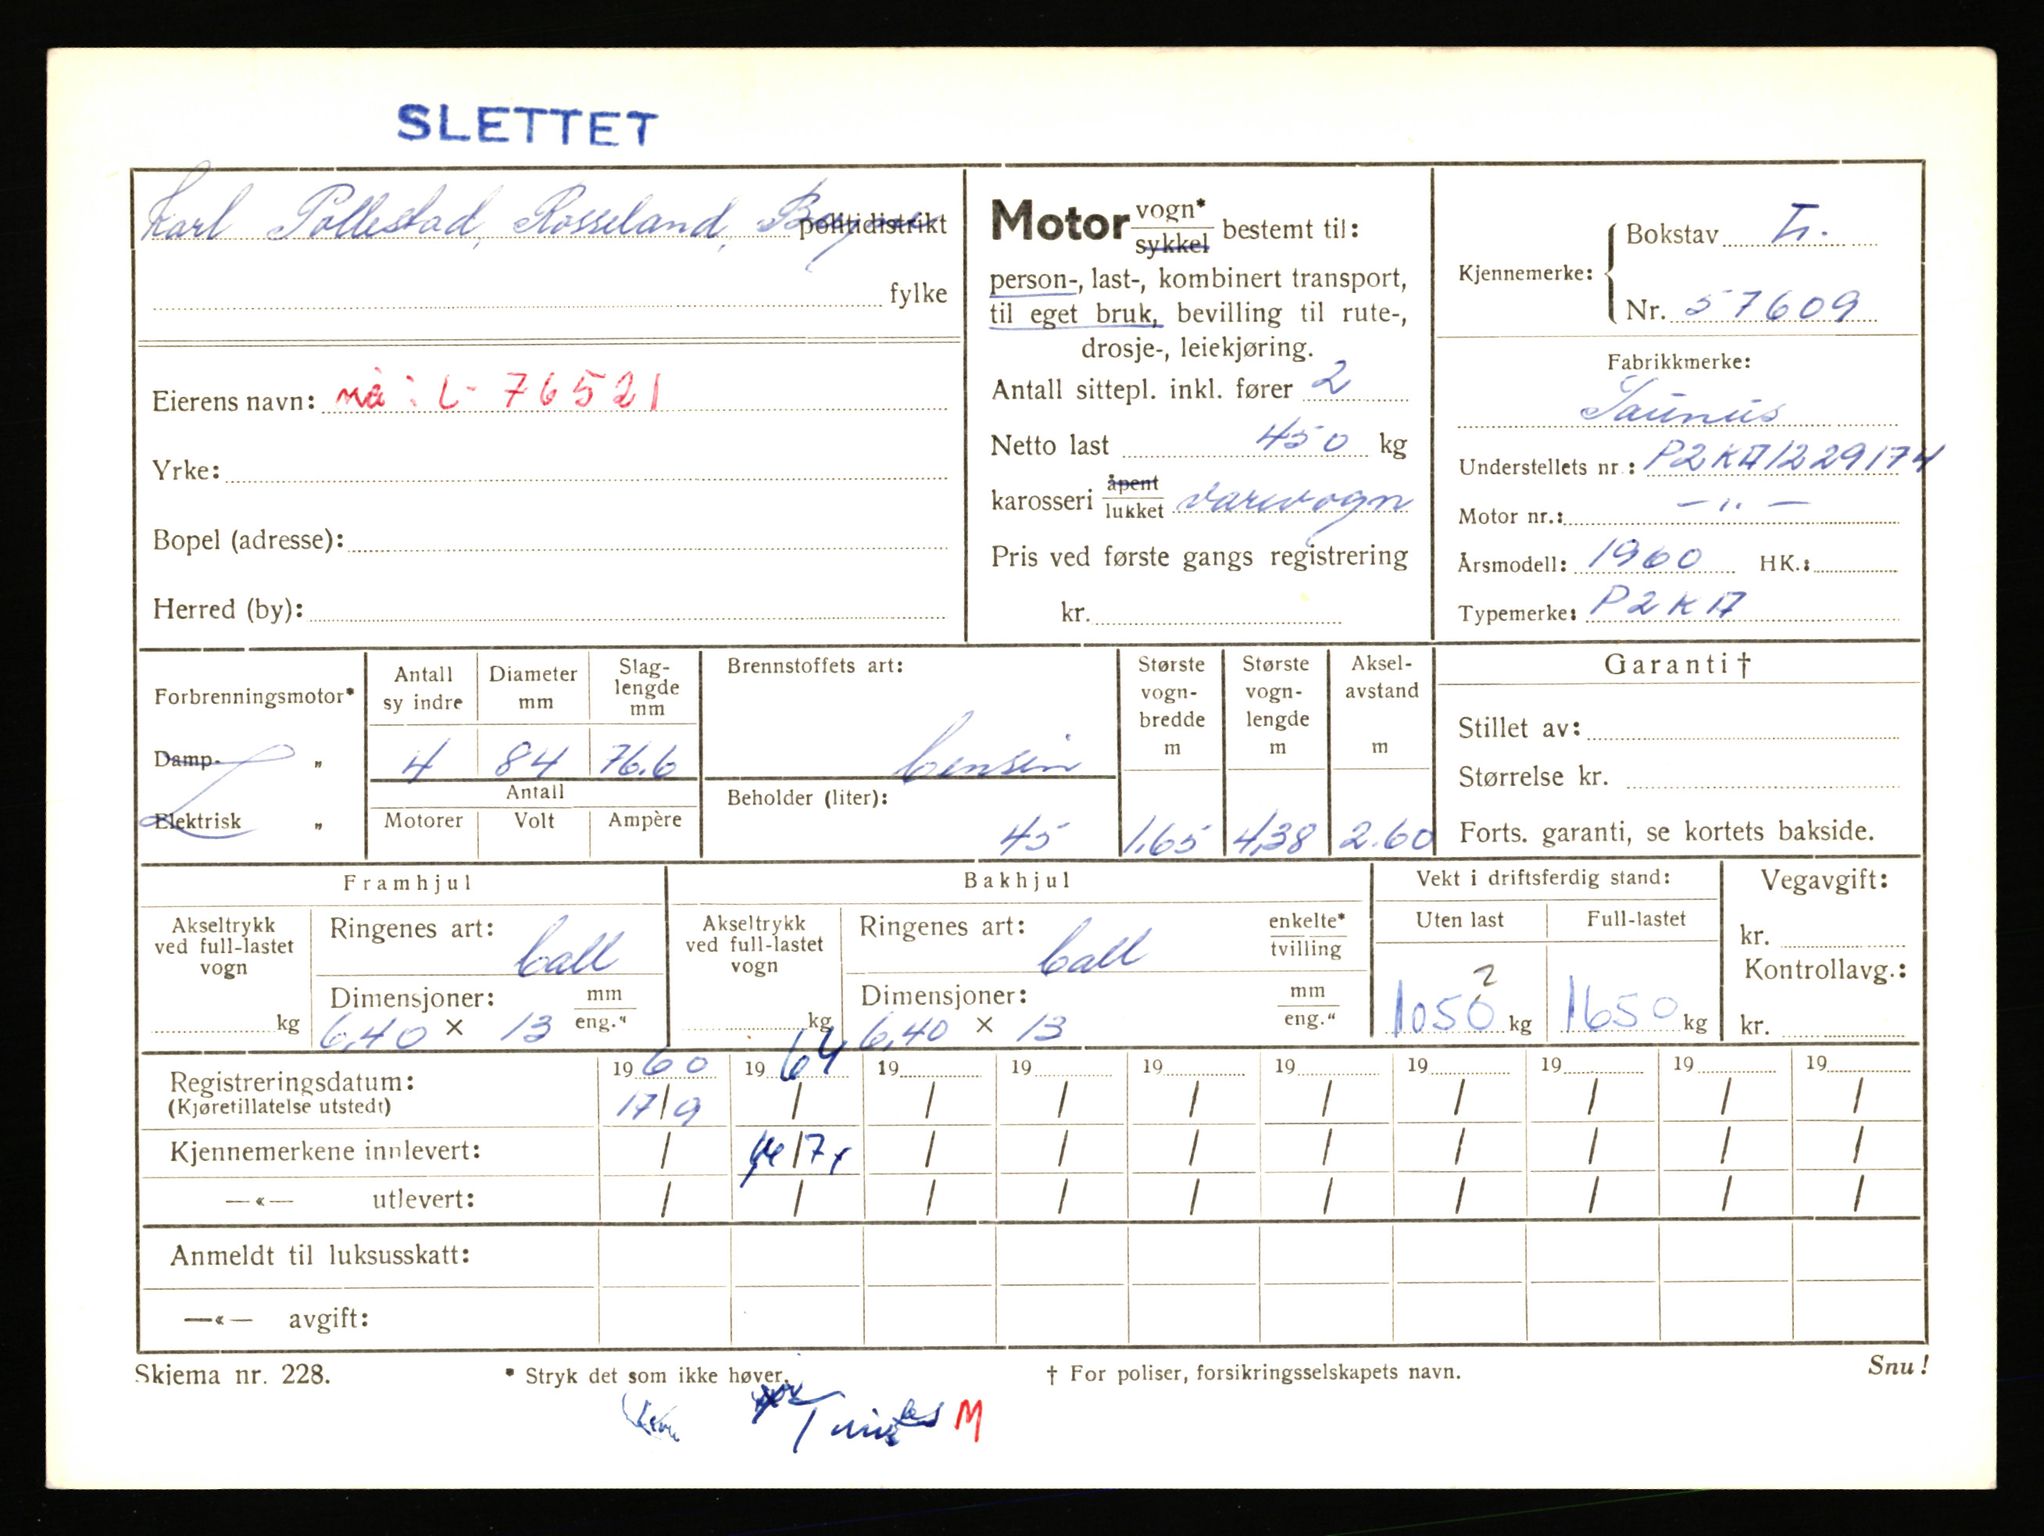 SLETTET
Karl Pollestad, Rosseland, politidistrikt
fylke
Eierens navn: nå: L- 76521
Yrke:
Bopel (adresse):
Herred (by):
Motor vogn* sykkel bestemt til:
person-, last-, kombinert transport,
til eget bruk, bevilling til rute-,
drosje-, leiekjøring.
Antall sittepl. inkl. fører 2
Netto last 450 kg
karosseri åpent lukket varevogn
Pris ved første gangs registrering
kr.
Kjennemerke: Bokstav L.
Nr. 57609
Fabrikkmerke:
Taunus
Understellets nr.: P2KA1229174
Motor nr.: — " —
Årsmodell: 1960 HK.:
Typemerke: P2KA
Forbrenningsmotor*
Damp- "
Elektrisk "
Antall sylindre
4
Diameter mm
84
Slaglengde mm
76.6
Antall
Motorer Volt Ampère
Brennstoffets art:
bensin
Beholder (liter):
45
Største vognbredde m
1.65
Største vognlengde m
4,38
Akselavstand m
2.60
Garanti †
Stillet av:
Størrelse kr.
Forts. garanti, se kortets bakside.
Framhjul
Akseltrykk ved full-lastet vogn
kg
Ringenes art: ball
Dimensjoner: mm eng."
6,40 × 13
Bakhjul
Akseltrykk ved full-lastet vogn
kg
Ringenes art: ball enkelte* tvilling
Dimensjoner: mm eng."
6,40 × 13
Vekt i driftsferdig stand:
Uten last Full-lastet
2
1050 kg 1650 kg
Vegavgift:
kr.
Kontrollavg.:
kr.
Registreringsdatum: 1960 1964 19 19 19 19 19 19 19 19
(Kjøretillatelse utstedt) 17/9 / / / / / / / / /
Kjennemerkene innlevert: / /7 / / / / / / / /
—«— utlevert: / / / / / / / / / /
Anmeldt til luksusskatt:
—«— avgift:
Skjema nr. 228. * Stryk det som ikke høver. † For poliser, forsikringsselskapets navn. Snu!
M